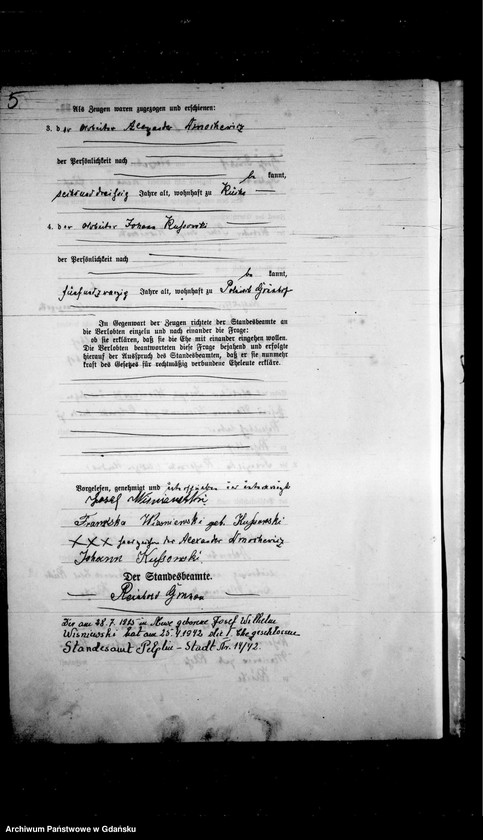 5
Als Zeugen waren zugezogen und erschienen:
3. der Arbeiter Alexander
der Persönlichkeit nach
be kannt,
sechsunddreißig Jahre alt, wohnhaft zu
4. der Arbeiter Johann Kussowski
der Persönlichkeit nach
be kannt,
fünfundzwanzig Jahre alt, wohnhaft zu
In Gegenwart der Zeugen richtete der Standesbeamte an
die Verlobten einzeln und nach einander die Frage:
ob sie erklären, daß sie die Ehe mit einander eingehen wollen.
Die Verlobten beantworteten diese Frage bejahend und erfolgte
hierauf der Ausspruch des Standesbeamten, daß er sie nunmehr
kraft des Gesetzes für rechtmäßig verbundene Eheleute erkläre.
Vorgelesen, genehmigt und
Josef Wisniewski
Franziska Wisniewski geb. Kussowski
XXX Handzeichen des Alexander
Johann Kussowski.
Der Standesbeamte.
Der am 28.7.1865 in Mewe geborene Josef Wilhelm
Wisniewski hat am 25.4.1942 die I. Ehe geschlossen
Standesamt Pelplin - Stadt Nr. 14/42.
Archiwum Państwowe w Gdańsku